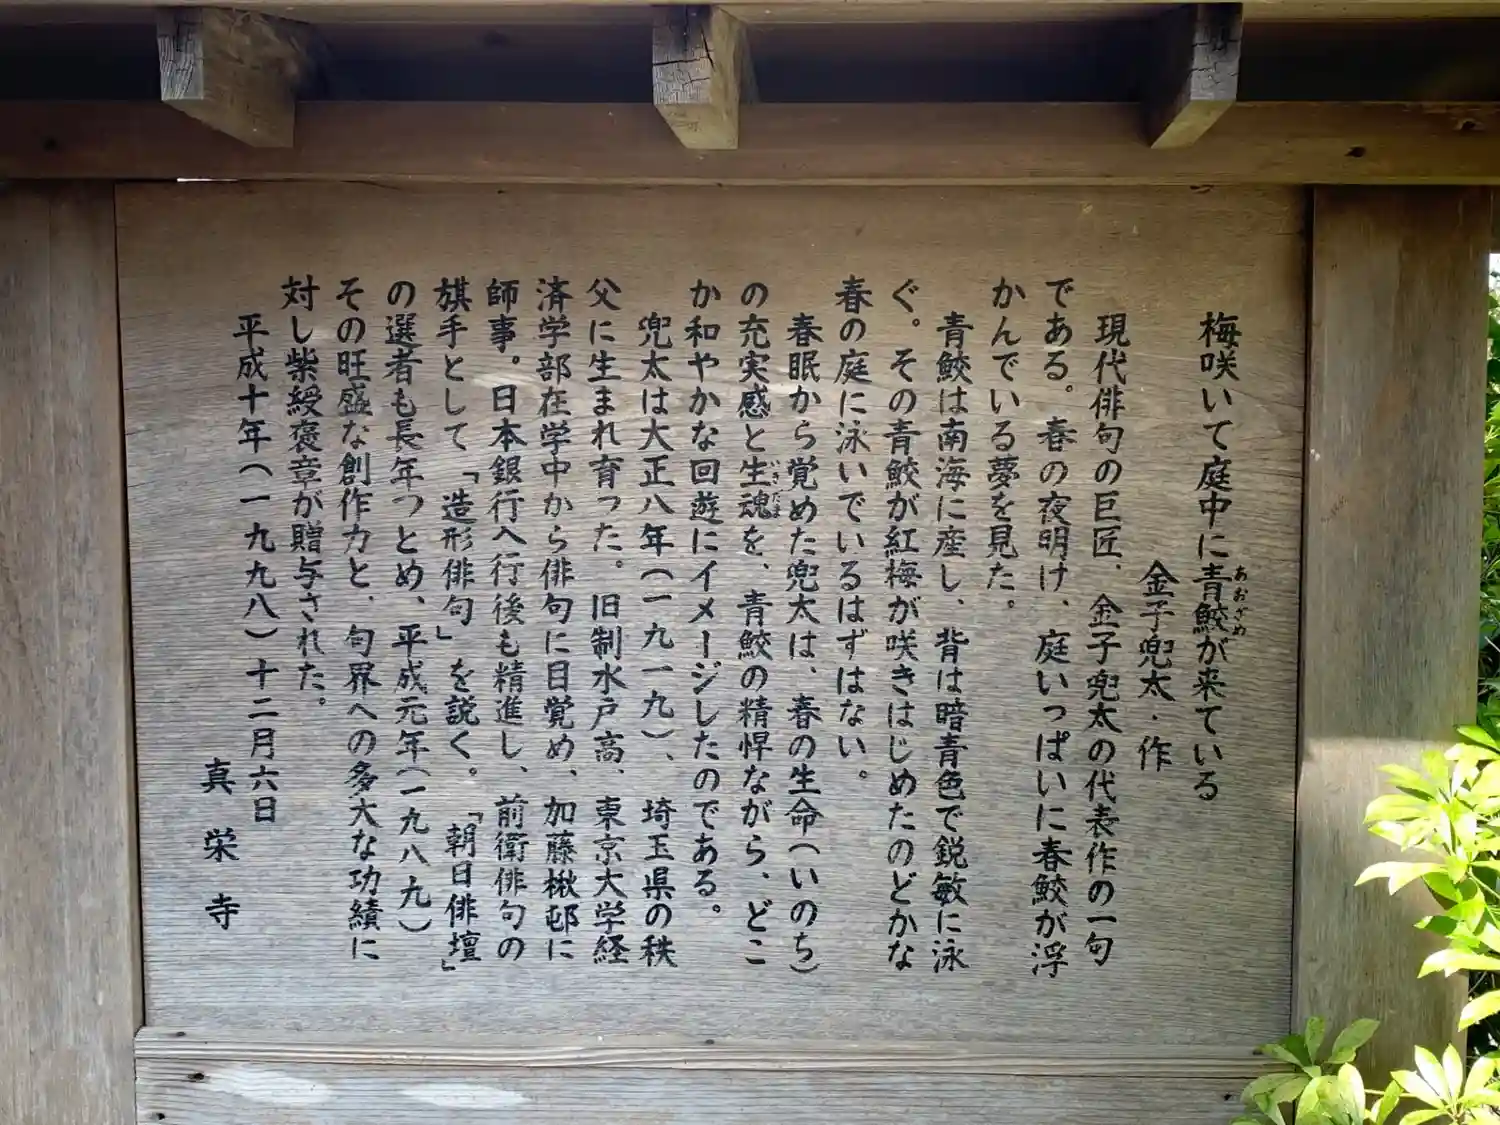 梅咲いて庭中に青鮫が来ている
あおざめ
金子兜太・作
現代俳句の巨匠、金子兜太の代表作の一句
である。春の夜明け、庭いっぱいに春鮫が浮
かんでいる夢を見た。
青鮫は南海に産し、背は暗青色で鋭敏に泳
ぐ。その青鮫が紅梅が咲きはじめたのどかな
春の庭に泳いでいるはずはない。
春眠から覚めた兜太は、春の生命(いのち)
の充実感と生魂を、青鮫の精悍ながら、どこ
いきだま
か和やかな回遊にイメージしたのである。
兜太は大正八年(一九一九)、埼玉県の秩
父に生まれ育った。旧制水戸高、東京大学経
済学部在学中から俳句に目覚め、加藤楸邨に
師事。日本銀行へ行後も精進し、前衛俳句の
旗手として「造形俳句」を説く。「朝日俳壇」
の選者も長年つとめ、平成元年(一九八九)
その旺盛な創作力と、句界への多大な功績に
対し紫綬褒章が贈与された。
平成十年(一九九八)十二月六日
真栄寺